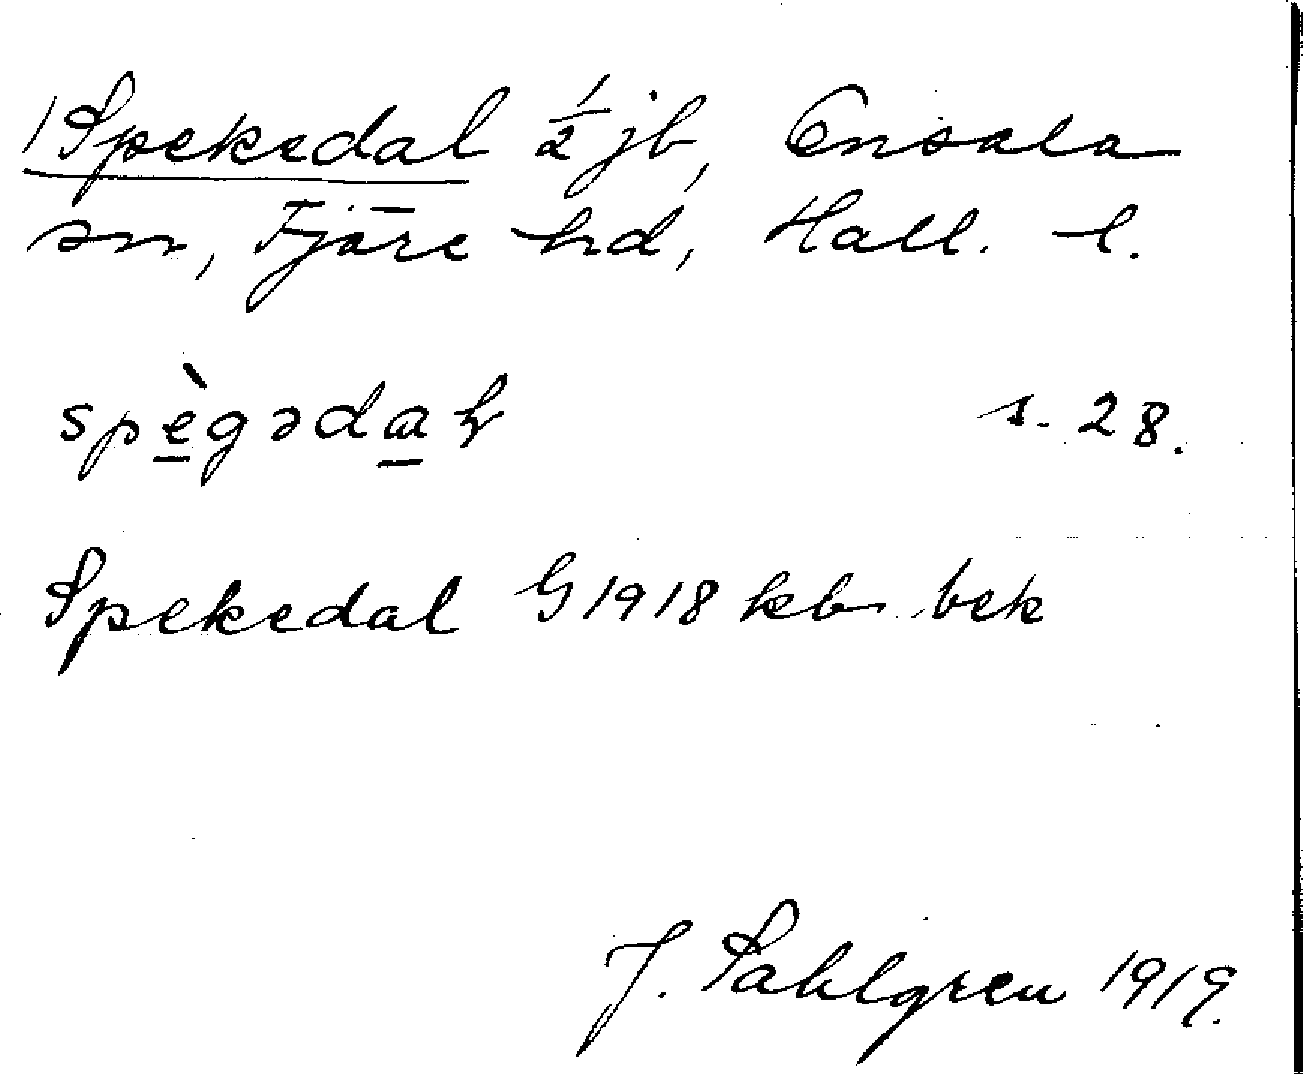 1 Spekedal ½ jb, Onsala
sn, Fjäre hd, Hall. l.
spè̱gəda̱ɫ s. 28.
Spekedal G 1918 kb bek
J. Sahlgren 1919.